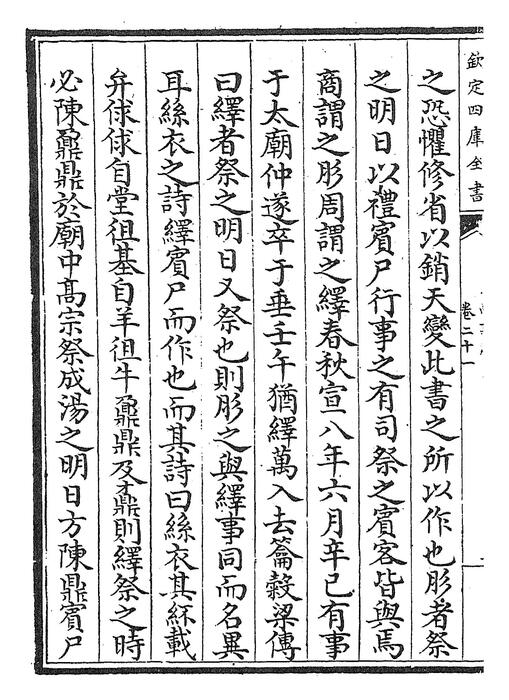 欽定四庫全書
卷二十一
之恐懼修省以銷天變此書之所以作也肜者祭
之明日以禮賓尸行事之有司祭之賓客皆與焉
商謂之肜周謂之繹春秋宣八年六月辛已有事
于太廟仲遂卒于垂壬午猶繹萬入去籥穀梁傳
曰繹者祭之明日又祭也則肜之與繹事同而名異
耳絲衣之詩繹賓尸而作也而其詩曰絲衣其紑載
弁俅俅自堂徂基自羊徂牛鼐鼎及鼒則繹祭之時
必陳鼐鼎於廟中高宗祭成湯之明日方陳鼎賓尸